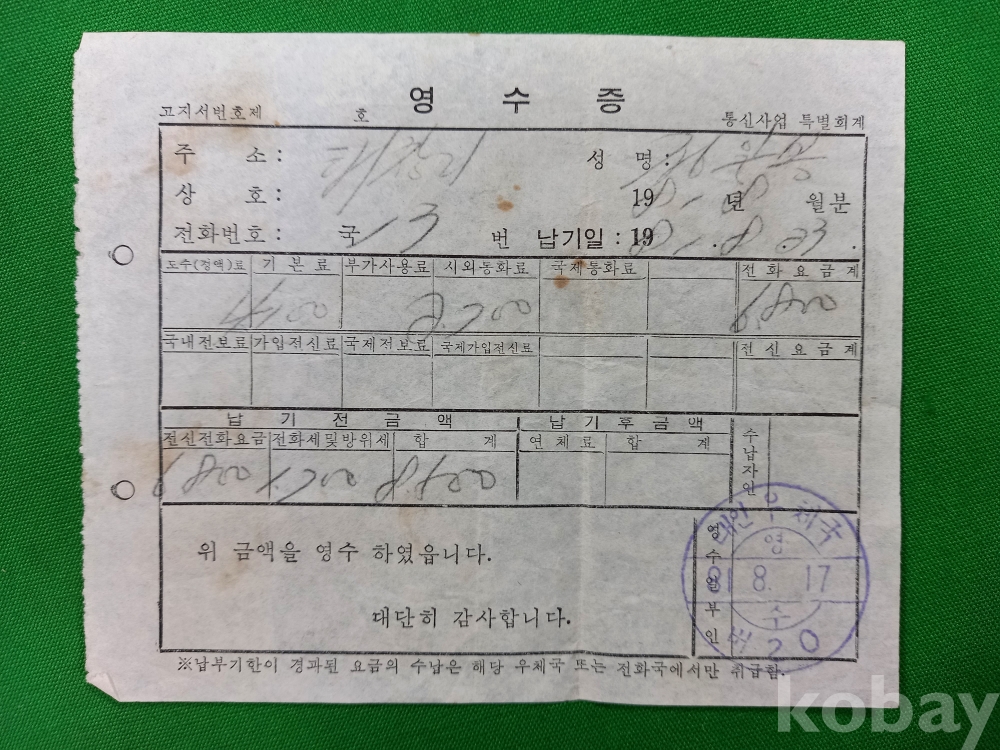 영 수 증
고지서번호제 호 통신사업 특별회계
주 소 : 태창리 성 명 :
상 호 : 1981년 8월분
전화번호 : 국 13 번 납기일 : 1981. 8. 23.
도수(정액)료 기본료 부가사용료 시외통화료 국제통화료 전화요금계
4,100 2,700 6,800
국내전보료 가입전신료 국제전보료 국제가입전신료 전신요금계
납 기 전 금 액 납 기 후 금 액 수납자인
전신전화요금 전화세및방위세 합 계 연체료 합 계
6800
위 금액을 영수 하였읍니다.
대단히 감사합니다.
영수일부인
태안우체국
영
81 8. 17
소
20
※납부기한이 경과된 요금의 수납은 해당 우체국 또는 전화국에서만 취급함.
kobay